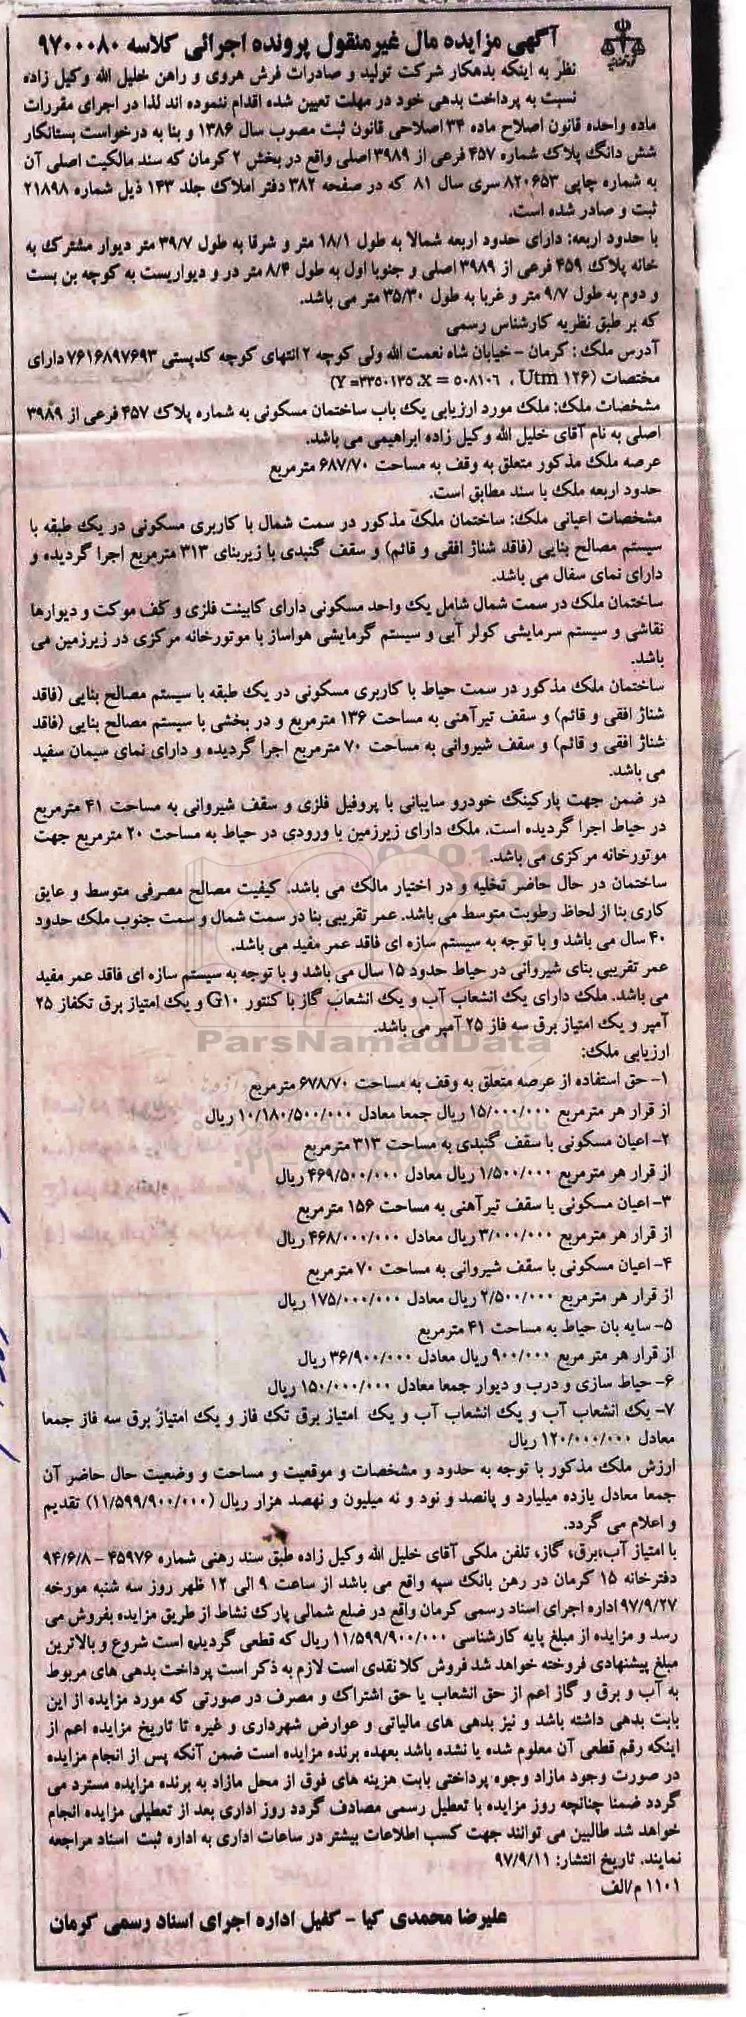 آگهی مزایده مال غیرمنقول پرونده اجرائی کلاسه ۹۷۰۰۰۸۰
نظر به اینکه بدهکار شرکت تولید و صادرات فرش هروی و راهن خلیل الله وکیل زاده
نسبت به پرداخت بدهی خود در مهلت تعیین شده اقدام ننموده اند لذا در اجرای مقررات
ماده واحده قانون اصلاح ماده ۳۴ اصلاحی قانون ثبت مصوب سال ۱۳۸۶ و بنا به درخواست بستانکار
شش دانگ پلاک شماره ۴۵۷ فرعی از ۳۹۸۹ اصلی واقع در بخش ۲ کرمان که سند مالکیت اصلی آن
به شماره چاپی ۸۲۰۶۵۳ سری سال ۸۱ که در صفحه ۳۸۲ دفتر املاک جلد ۱۴۳ ذیل شماره ۲۱۸۹۸
ثبت و صادر شده است.
با حدود اربعه: دارای حدود اربعه شمالا به طول ۱۸/۱ متر و شرقا به طول ۳۹/۷ متر دیوار مشترک به
خانه پلاک ۴۵۹ فرعی از ۳۹۸۹ اصلی و جنوبا اول به طول ۸/۴ متر در و دیواریست به کوچه بن بست
و دوم به طول ۹/۷ متر و غربا به طول ۳۵/۳۰ متر می باشد.
که بر طبق نظریه کارشناس رسمی
آدرس ملک : کرمان - خیابان شاه نعمت الله ولی کوچه ۲ انتهای کوچه کدپستی ۷۶۱۶۸۹۷۶۹۳ دارای
مختصات (Utm ۱۲۶ ، X = ۵۰۸۱۰۶، Y =۳۳۵۰۱۳۵)
مشخصات ملک: ملک مورد ارزیابی یک باب ساختمان مسکونی به شماره پلاک ۴۵۷ فرعی از ۳۹۸۹
اصلی به نام آقای خلیل الله وکیل زاده ابراهیمی می باشد.
عرصه ملک مذکور متعلق به وقف به مساحت ۶۸۷/۷۰ مترمربع
حدود اربعه ملک با سند مطابق است.
مشخصات اعیانی ملک: ساختمان ملک مذکور در سمت شمال با کاربری مسکونی در یک طبقه با
سیستم مصالح بنایی (فاقد شناژ افقی و قائم) و سقف گنبدی با زیربنای ۳۱۳ مترمربع اجرا گردیده و
دارای نمای سفال می باشد.
ساختمان ملک در سمت شمال شامل یک واحد مسکونی دارای کابینت فلزی و کف موکت و دیوارها
نقاشی و سیستم سرمایشی کولر آبی و سیستم گرمایشی هواساز با موتورخانه مرکزی در زیرزمین می
باشد.
ساختمان ملک مذکور در سمت حیاط با کاربری مسکونی در یک طبقه با سیستم مصالح بنایی (فاقد
شناژ افقی و قائم) و سقف تیرآهنی به مساحت ۱۳۶ مترمربع و در بخشی با سیستم مصالح بنایی (فاقد
شناژ افقی و قائم) و سقف شیروانی به مساحت ۷۰ مترمربع اجرا گردیده و دارای نمای سیمان سفید
می باشد.
در ضمن جهت پارکینگ خودرو سایبانی با پروفیل فلزی و سقف شیروانی به مساحت ۴۱ مترمربع
در حیاط اجرا گردیده است. ملک دارای زیرزمین با ورودی در حیاط به مساحت ۲۰ مترمربع جهت
موتورخانه مرکزی می باشد.
ساختمان در حال حاضر تخلیه و در اختیار مالک می باشد. کیفیت مصالح مصرفی متوسط و عایق
کاری بنا از لحاظ رطوبت متوسط می باشد. عمر تقریبی بنا در سمت شمال و سمت جنوب ملک حدود
۴۰ سال می باشد و با توجه به سیستم سازه ای فاقد عمر مفید می باشد.
عمر تقریبی بنای شیروانی در حیاط حدود ۱۵ سال می باشد و با توجه به سیستم سازه ای فاقد عمر مفید
می باشد. ملک دارای یک انشعاب آب و یک انشعاب گاز با کنتور G۱۰ و یک امتیاز برق تکفاز ۲۵
آمپر و یک امتیاز برق سه فاز ۲۵ آمپر می باشد.
ParsNamadData
ارزیابی ملک:
۱- حق استفاده از عرصه متعلق به وقف به مساحت ۶۷۸/۷۰ مترمربع
از قرار هر مترمربع ۱۵/۰۰۰/۰۰۰ ریال جمعا معادل ۱۰/۱۸۰/۵۰۰/۰۰۰ ریال
۲- اعیان مسکونی با سقف گنبدی به مساحت ۳۱۳ مترمربع
از قرار هر مترمربع ۱/۵۰۰/۰۰۰ ریال معادل ۴۶۹/۵۰۰/۰۰۰ ریال
۳- اعیان مسکونی با سقف تیرآهنی به مساحت ۱۵۶ مترمربع
از قرار هر مترمربع ۳/۰۰۰/۰۰۰ ریال معادل ۴۶۸/۰۰۰/۰۰۰ ریال
۴- اعیان مسکونی با سقف شیروانی به مساحت ۷۰ مترمربع
از قرار هر مترمربع ۲/۵۰۰/۰۰۰ ریال معادل ۱۷۵/۰۰۰/۰۰۰ ریال
۵- سایه بان حیاط به مساحت ۴۱ مترمربع
از قرار هر متر مربع ۹۰۰/۰۰۰ ریال معادل ۳۶/۹۰۰/۰۰۰ ریال
۶- حیاط سازی و درب و دیوار جمعا معادل ۱۵۰/۰۰۰/۰۰۰ ریال
۷- یک انشعاب آب و یک انشعاب آب و یک امتیاز برق تک فاز و یک امتیاز برق سه فاز جمعا
معادل ۱۲۰/۰۰۰/۰۰۰ ریال
ارزش ملک مذکور با توجه به حدود و مشخصات و موقعیت و مساحت و وضعیت حال حاضر آن
جمعا معادل یازده میلیارد و پانصد و نود و نه میلیون و نهصد هزار ریال (۱۱/۵۹۹/۹۰۰/۰۰۰) تقدیم
و اعلام می گردد.
با امتیاز آب،برق، گاز، تلفن ملکی آقای خلیل الله وکیل زاده طبق سند رهنی شماره ۴۵۹۷۶ - ۹۴/۶/۸
دفترخانه ۱۵ کرمان در رهن بانک سپه واقع می باشد از ساعت ۹ الی ۱۲ ظهر روز سه شنبه مورخه
۹۷/۹/۲۷ اداره اجرای اسناد رسمی کرمان واقع در ضلع شمالی پارک نشاط از طریق مزایده بفروش می
رسد و مزایده از مبلغ پایه کارشناسی ۱۱/۵۹۹/۹۰۰/۰۰۰ ریال که قطعی گردیده است شروع و بالاترین
مبلغ پیشنهادی فروخته خواهد شد فروش کلا نقدی است لازم به ذکر است پرداخت بدهی های مربوط
به آب و برق و گاز اعم از حق انشعاب یا حق اشتراک و مصرف در صورتی که مورد مزایده از این
بابت بدهی داشته باشد و نیز بدهی های مالیاتی و عوارض شهرداری و غیره تا تاریخ مزایده اعم از
اینکه رقم قطعی آن معلوم شده یا نشده باشد بعهده برنده مزایده است ضمن آنکه پس از انجام مزایده
در صورت وجود مازاد وجوه پرداختی بابت هزینه های فوق از محل مازاد به برنده مزایده مسترد می
گردد ضمنا چنانچه روز مزایده با تعطیل رسمی مصادف گردد روز اداری بعد از تعطیلی مزایده انجام
خواهد شد طالبین می توانند جهت کسب اطلاعات بیشتر در ساعات اداری به اداره ثبت اسناد مراجعه
نمایند. تاریخ انتشار: ۹۷/۹/۱۱
۱۱۰۱ م/الف
علیرضا محمدی کیا - کفیل اداره اجرای اسناد رسمی کرمان